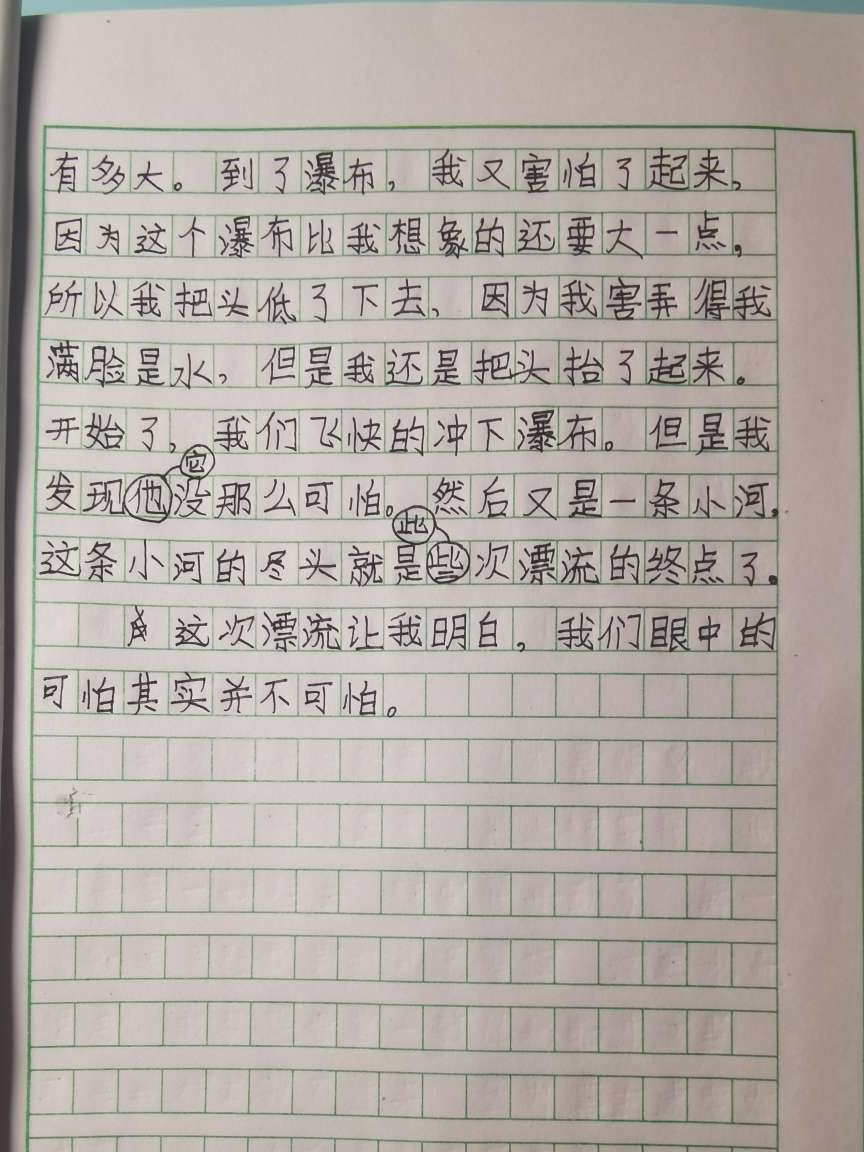 有多大。到了瀑布，我又害怕了起来，
因为这个瀑布比我想象的还要大一点，
所以我把头低了下去，因为我害弄得我
满脸是水，但是我还是把头抬了起来。
开始了，我们飞快的冲下瀑布。但是我
它
发现他没那么可怕。然后又是一条小河，
此
这条小河的尽头就是些次漂流的终点了。
这次漂流让我明白，我们眼中的
可怕其实并不可怕。